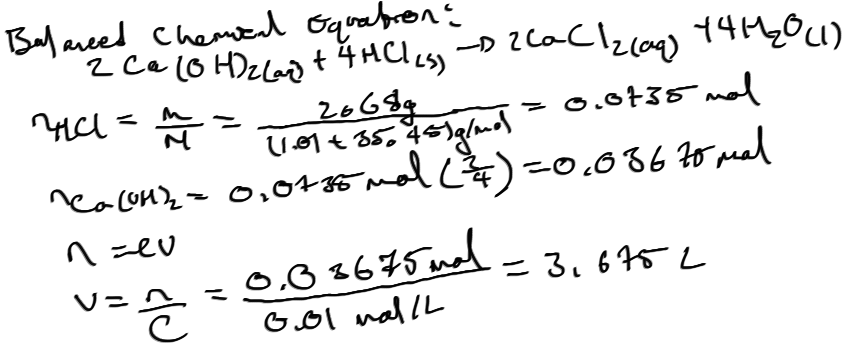 Balanced Chemical Equation:
2 Ca(OH)2(aq) + 4HCl(s) → 2CaCl2(aq) + 4H2O(l)
nHCl = m/M = 2.68g/(1.01 + 35.45)g/mol = 0.0735 mol
nCa(OH)2 = 0.0735 mol (2/4) = 0.03675 mol
n = cv
v = n/C = 0.03675 mol/0.01 mol/L = 3.675 L